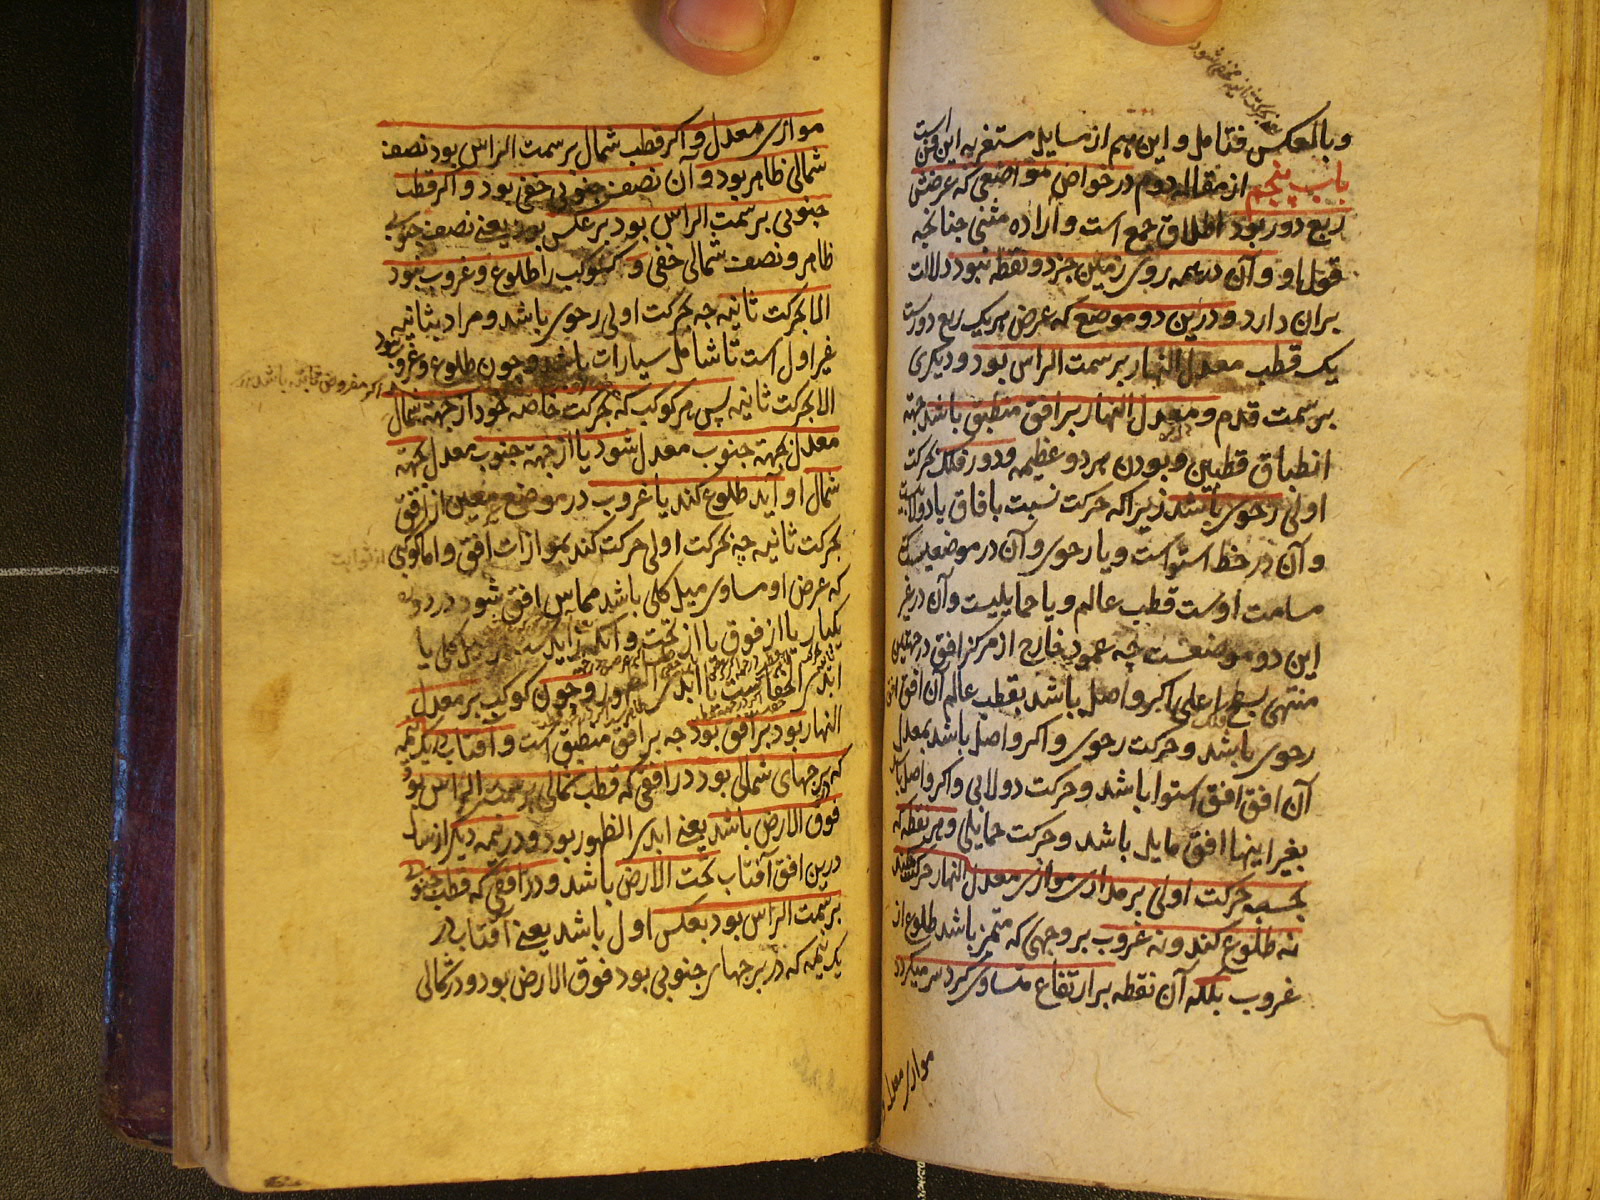 و بالعکس فتامل و این هم از مسایل مستغربه این فن است
باب پنجم از مقاله دوم در خواص مواضعی که عرض
ربع دور بود اطلاق جمع است و اراده مثنی چنانچه
قول او و آن در همه روی زمین جز دو نقطه نبود دلالت
بران دارد و درین دو موضع که عرض هر یک ربع دورست
یک قطب معدل النهار بر سمت الراس بود و دیکری
بر سمت قدم و معدل النهار بر افق منطبق باشد جهة
انطباق قطبین و بودن هر دو عظیمه و دور فلک بحرکت
اولی رحوی باشد زیرا که حرکت نسبت بافاق یا دولابیست
و آن در خط استواست و یا رحوی و آن در موضعیست که
مسامت اوست قطب عالم و یا حمایلیست و آن در غیر
این دو موضعست چه عمود خارج از مرکز افق در جهتین
منتهی بسطح اعلی اکر واصل باشد بقطب عالم آن افق افق
رحوی باشد و حرکت رحوی و اکر واصل باشد بمعدل
آن افق افق استوا باشد و حرکت دولابی و اکر واصل باشد
بغیر اینها افق مایل باشد و حرکت حمایلی و هر نقطه که
بحسب حرکت اولی بر مداری موازی معدل النهار حرکت کند
نه طلوع کند و نه غروب بر وجهی که متمیز باشد طلوع از
غروب بلکه آن نقطه بر ارتفاع متساوی کرد سر میکردد
موازی معدل
موازی معدل و اکر قطب شمال بر سمت الراس بود نصف
شمالی ظاهر بود و آن نصف جنوبی خفی بود و اکر قطب
جنوبی بر سمت الراس بود بر عکس بود یعنی نصف جنوبی
ظاهر و نصف شمالی خفی و کوکب را طلوع و غروب نبود
الا بحرکت ثانیه چه بحرکت اولی رحوی باشد و مراد بثانیه
غیر اول است تا شامل سیارات باشد و چون طلوع و غروب نبود
الا بحرکت ثانیه پس هر کوکب که بحرکت خاصه خود از جهة شمال
معدل بجهة جنوب معدل شود یا از جهة جنوب معدل بجهة
شمال او آید طلوع کند یا غروب در موضع معین از افق
بحرکت ثانیه چه بحرکت اولی حرکت کند بموازات افق و اما کوکبی
که عرض او مساوی میل کلی باشد مماس افق شود در دوره
یکبار یا از فوق یا از تحت و آنکه زاید میل کلی یا
ابدی الخفا یا ابدی الظهور و چون کوکب بر معدل
النهار بود بر افق بود چه بر افق منطبق است و آفتاب یک نیمه
که در برجهای شمالی بود در افقی که قطب شمالی بر سمت الراس بود
فوق الارض باشد یعنی ابدی الظهور بود و در نیمه دیکر از سال
درین افق آفتاب تحت الارض باشد و در افقی که قطب جنوبی
بر سمت الراس بود بعکس اول باشد یعنی آفتاب در
یک نیمه که در برجهای جنوبی بود فوق الارض بود و در شمالی